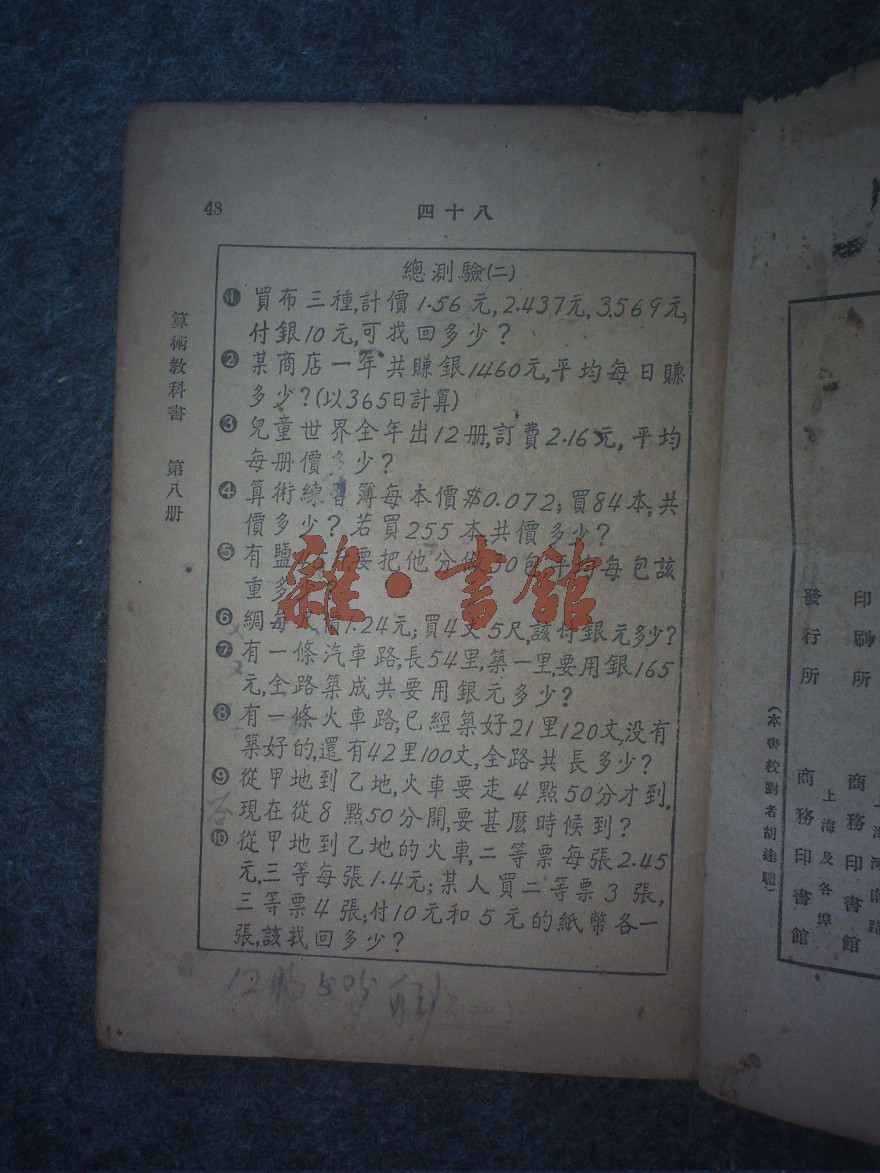 48
四十八
算術教科書 第八册
總測驗(二)
❶ 買布三種,計價1.56元,2.437元,3.569元,
付銀10元,可找回多少?
❷ 某商店一年共賺銀1460元,平均每日賺
多少?(以365日計算)
❸ 兒童世界全年出12册,訂費2.16元,平均
每册價多少?
❹ 算術練習簿每本價$0.072;買84本,共
價多少?若買255本,共價多少?
❺ 有鹽 要把他分做 0包,平均每包該
重多
❻ 綢每 價1.24元;買4丈5尺,該付銀元多少?
❼ 有一條汽車路,長54里,築一里,要用銀165
元,全路築成共要用銀元多少?
❽ 有一條火車路,已經築好21里120丈,没有
築好的,還有42里100丈,全路共長多少?
❾ 從甲地到乙地,火車要走4點50分才到.
現在從8點50分開,要甚麼時候到?
❿ 從甲地到乙地的火車,二等票每張2.45
元,三等每張1.4元;某人買二等票3張,
三等票4張;付10元和5元的紙幣各一
張,該找回多少?
雜·書館
印刷所
發行所
上海河南路
商務印書館
上海及各埠
商務印書館
(本書校對者胡達聰)